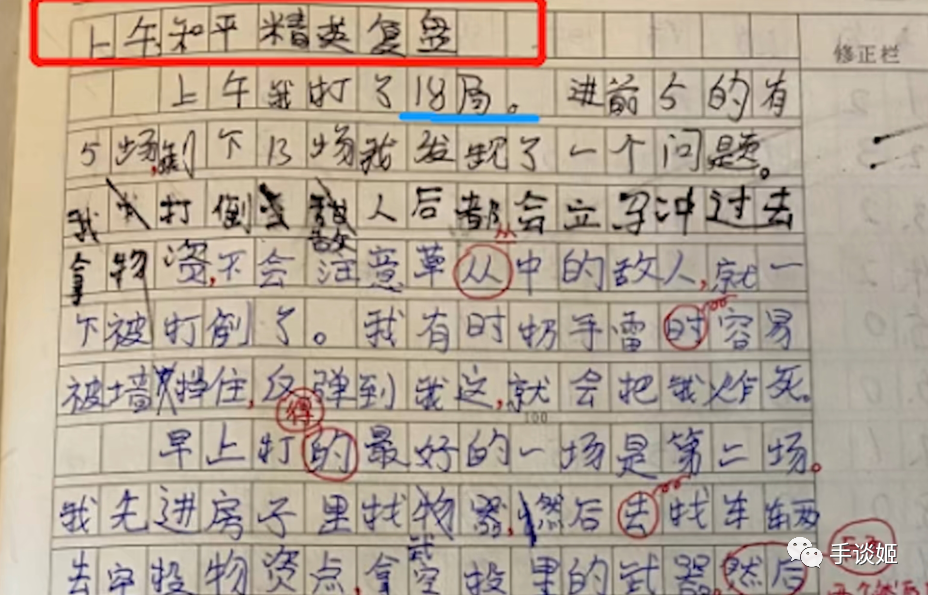 上午和平精英复盘
修正栏
上午我打了18局。进前5的有
5场,剩下13场我发现了一个问题。
我打倒敌人后都会立马冲过去
拿物资,不会注意草从中的敌人,就一
下被打倒了。我有时扔手雷时容易
被墙挡住,反弹到我这,就会把我炸死。
得
100
早上打的最好的一场是第二场。
我先进房子里找物器,然后去找车辆
去空投物资点,拿空投里的武器,然后
手谈姬